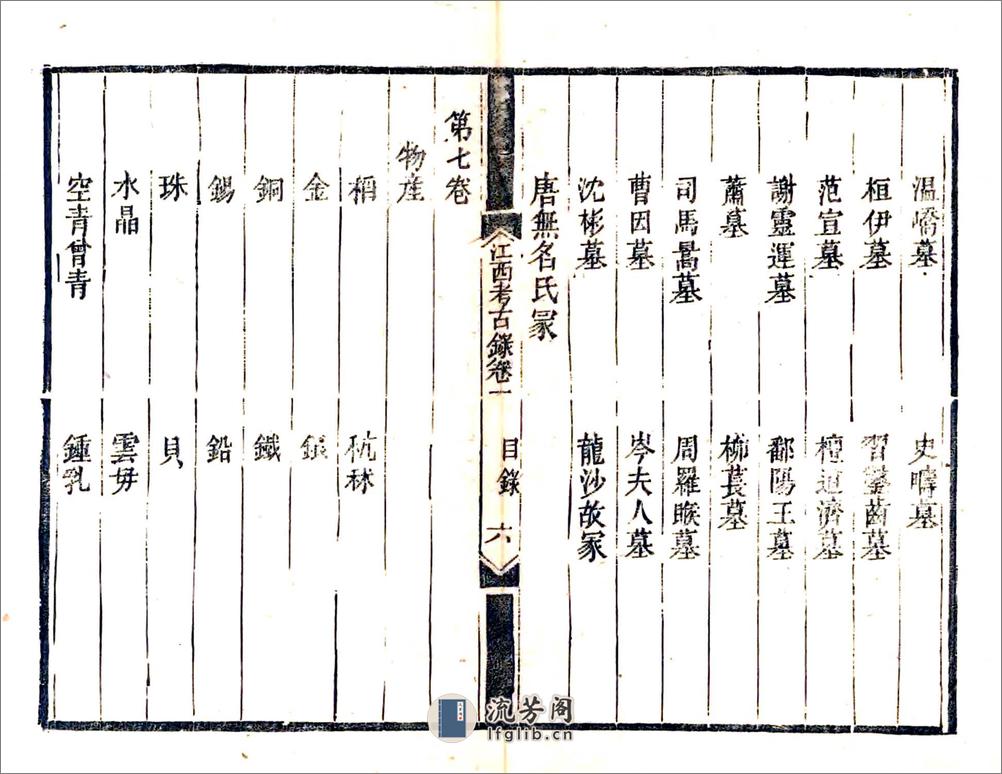 溫嶠墓 史疇墓
桓伊墓 習鑿齒墓
范宣墓 檀道濟墓
謝靈運墓 鄱陽王墓
蕭墓 柳萇墓
司馬暠墓 周羅睺墓
曹因墓 岑夫人墓
沈彬墓 龍沙故冢
唐無名氏冢
江西考古錄卷一 目錄 六
第七卷
物產
稻 秔秫
金 銀
銅 鐵
錫 鉛
珠 貝
水晶 雲母
空青曾青 鍾乳
流芳阁
lfglib.cn